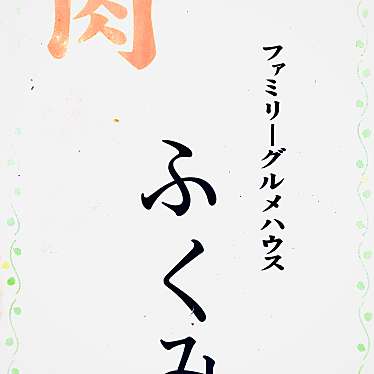 ファミリーグルメハウス
ふくみ
肉